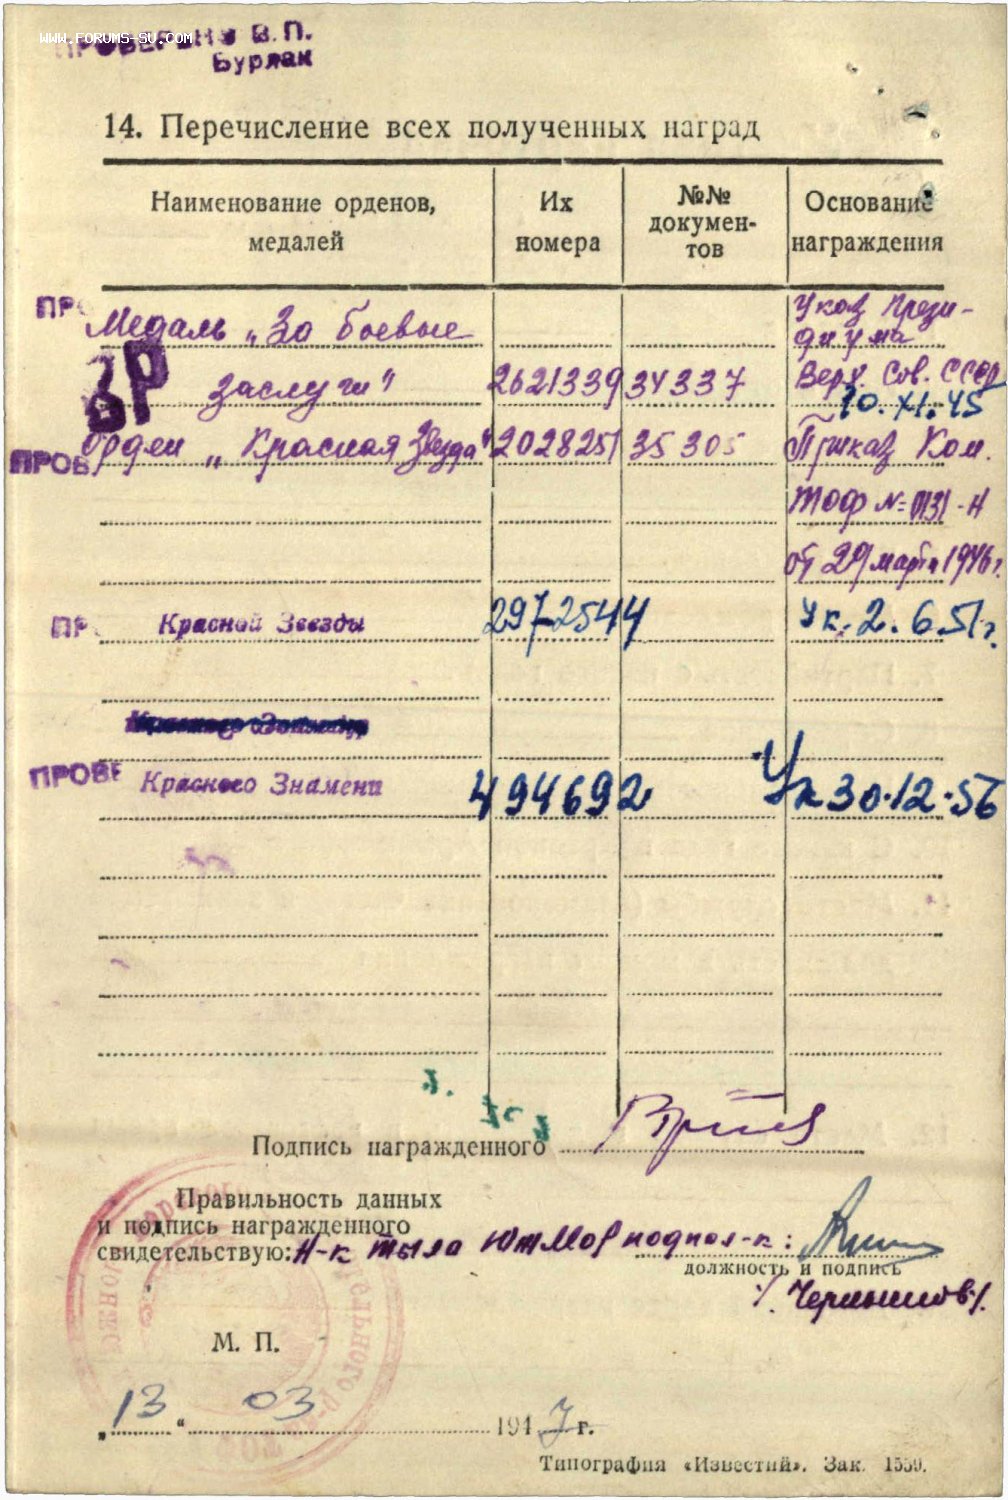 WWW.FORUMS-SU.COM
ПРОВЕРЕНО В.П.
Бурлак
14. Перечисление всех полученных наград
Наименование орденов, медалей
Их номера
№№ документов
Основание награждения
Медаль „За боевые
Указ Прези-
диума
заслуги" 2621339 34337 Верх. Сов. СССР
10.XI.45
ПРОВ Орден „Красная Звезда" 2028251 35305 Приказ Ком.
ТОФ №
от 29 марта 1946 г.
Красной Звезды 2972544 Ук. 2.6.51 г.
ПРОВЕ Красного Знамени 494692 Ук 30.12.56
Подпись награжденного
Правильность данных
и подпись награжденного
свидетельствую: Н-к тыла ЮтМор подпол-к:
должность и подпись
М. П.
„13" 03 1947 г.
Типография «Известий». Зак. 1559.